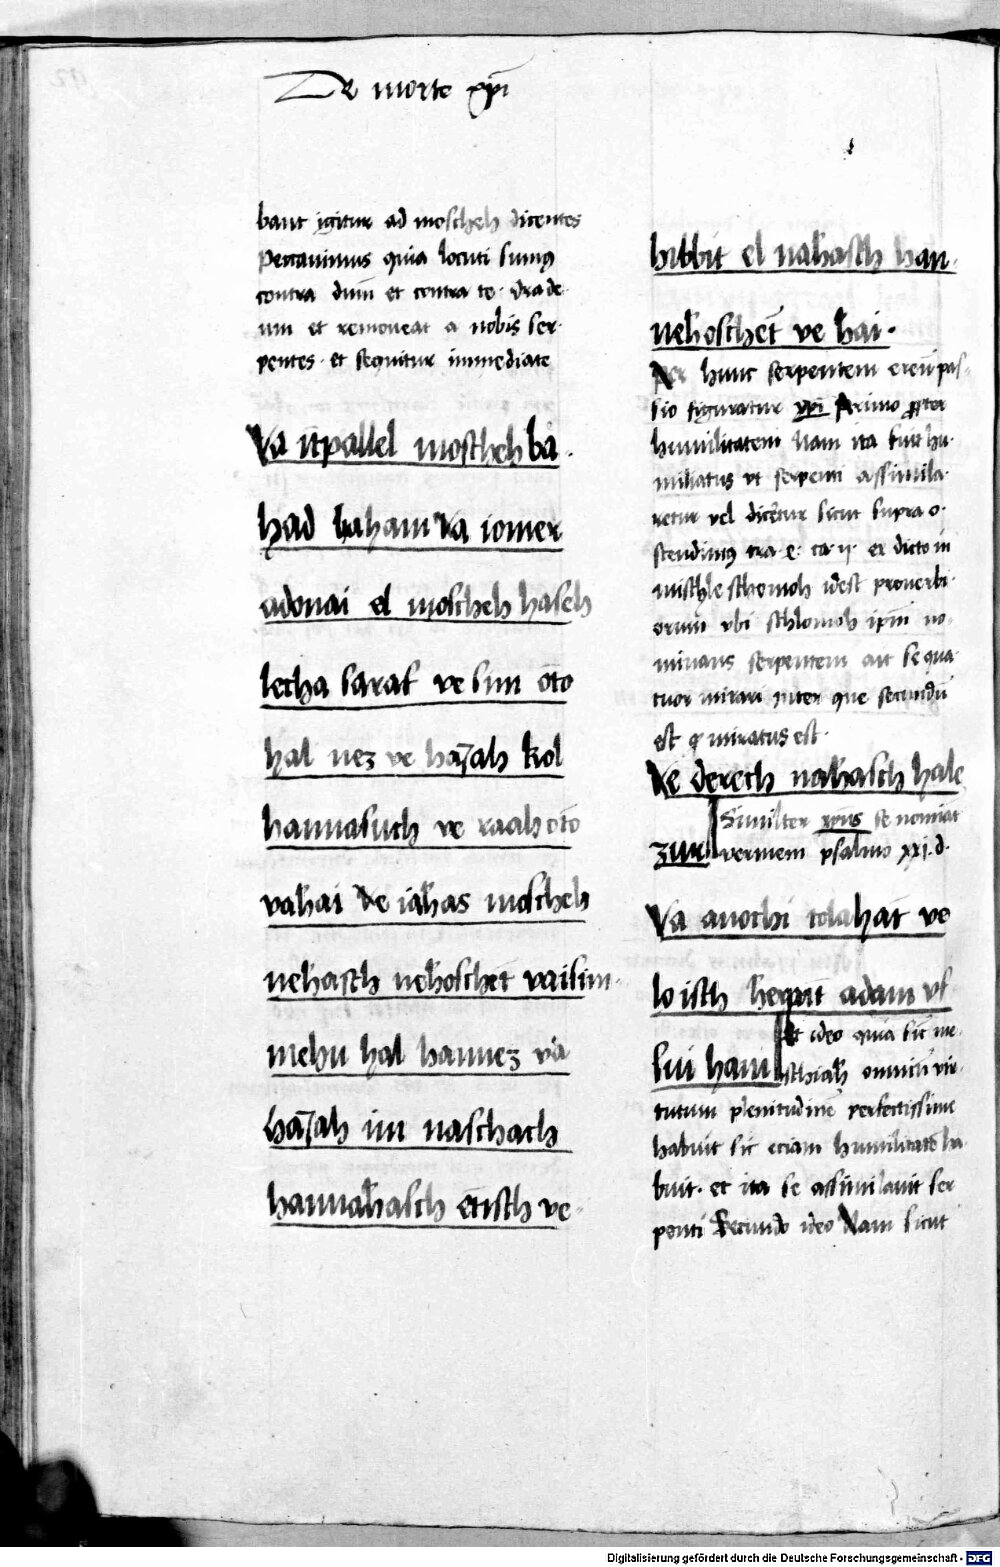 De morte xpi
bant igitur ad moscheh dicentes
Peccauimus quia locuti sumus
contra dnm et contra te
um et remoueat a nobis ser
pentes · et sequitur immediate
Va itpallel moscheh ba
had haham Va iomer
adonai el moscheh haseh
lecha saraf ve sim oto
hal nez ve haiah kol
hannasuch ve raah oto
vahai Ve iahas moscheh
nehasch nehoschet vaisim
mehu hal hannez va
haiah im naschach
hannahasch et isch ve
hibbit el nahasch han
nehoschet ve hai ·
Per hunc serpentem ereum pas
sio figuratur xpi Primo propter
humilitatem Nam ita fuit hu
miliatus vt serpenti assimila
retur vel dicetur sicut supra o
stendimus tra · e · ca · ij · ex dicto in
mischle schomoh idest prouerbi
orum vbi schlomoh ipm no
minans serpentem ait se qua
tuor mirari inter que secundum
est q miratus est ·
Ve derech nahasch hale
zur Similiter xpus se nominat
vermem psalmo xxi · d ·
Va anochi tolahat ve
lo isch herpat adam vf
sui ham Et ideo quia sic me
schiah omnium vir
tutum plenitudinem perfectissime
habuit sic eciam humilitatem ha
buit · et ita se assimilauit ser
penti Secundo ideo Nam sicut
Digitalisierung gefördert durch die Deutsche Forschungsgemeinschaft - DFG